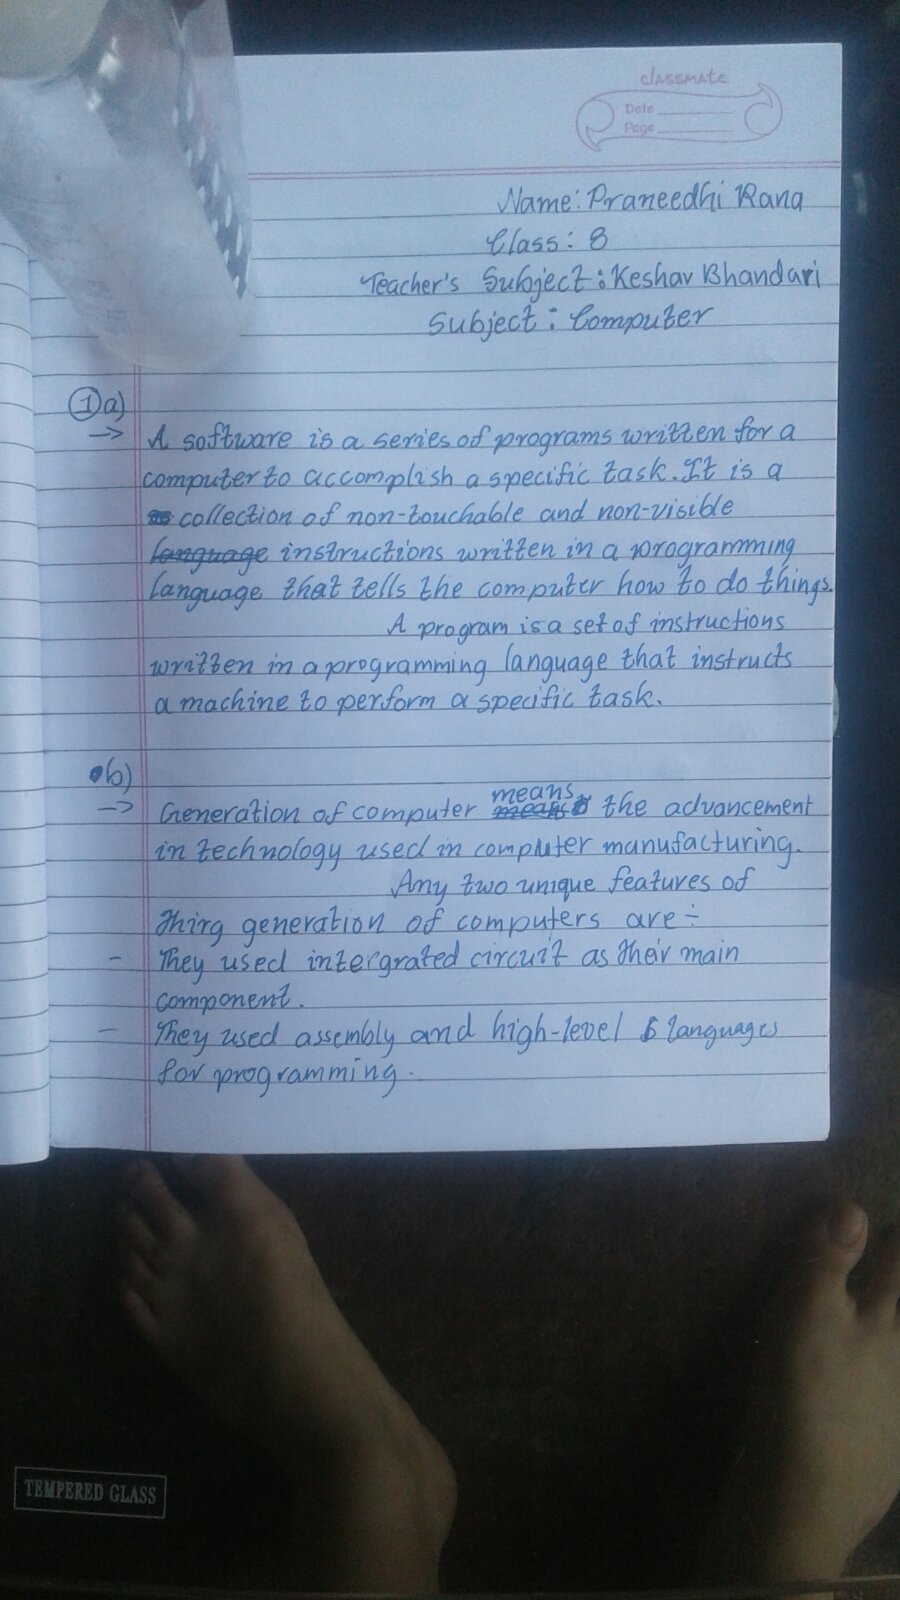 classmate
Date
Page
Name: Praneedhi Rana
Class: 8
Teacher's Subject: Keshav Bhandari
Subject: Computer
1 a)
→ A software is a series of programs written for a
computer to accomplish a specific task. It is a
collection of non-touchable and non-visible
language instructions written in a programming
language that tells the computer how to do things.
A program is a set of instructions
written in a programming language that instructs
a machine to perform a specific task.
b)
→ Generation of computer means the advancement
in technology used in computer manufacturing.
Any two unique features of
thirg generation of computers are :-
- They used intergrated circuit as their main
component.
- They used assembly and high-level languages
for programming.
TEMPERED GLASS